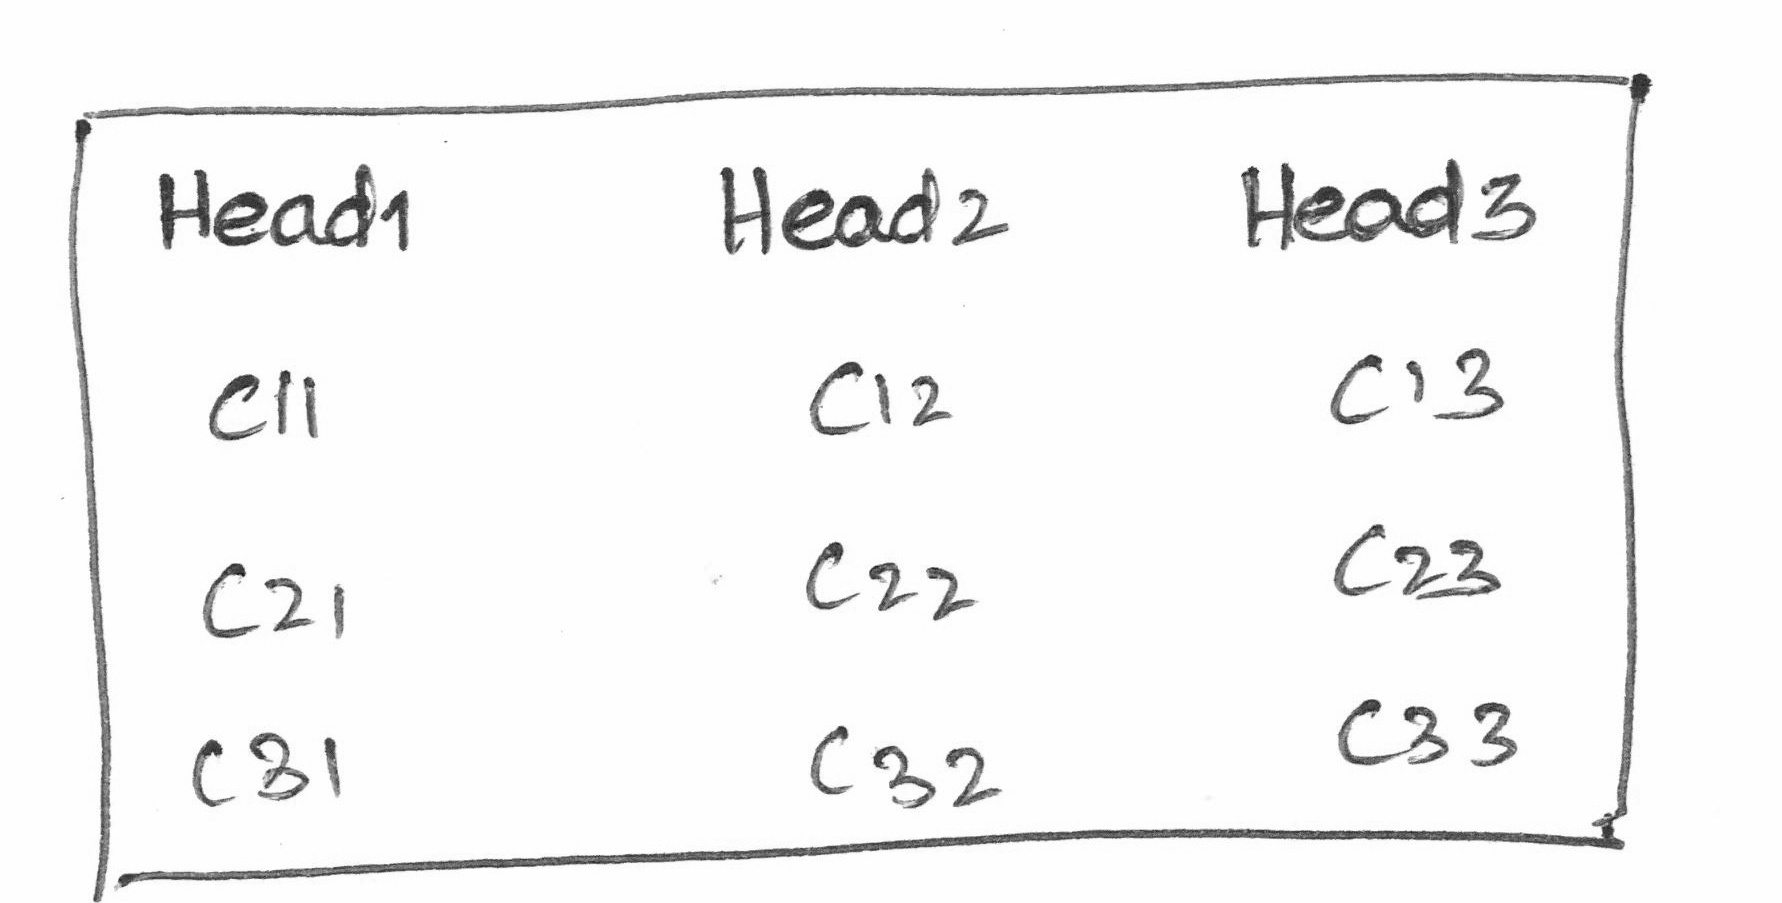 Head1 Head2 Head3
C11 C12 C13
C21 C22 C23
C31 C32 C33